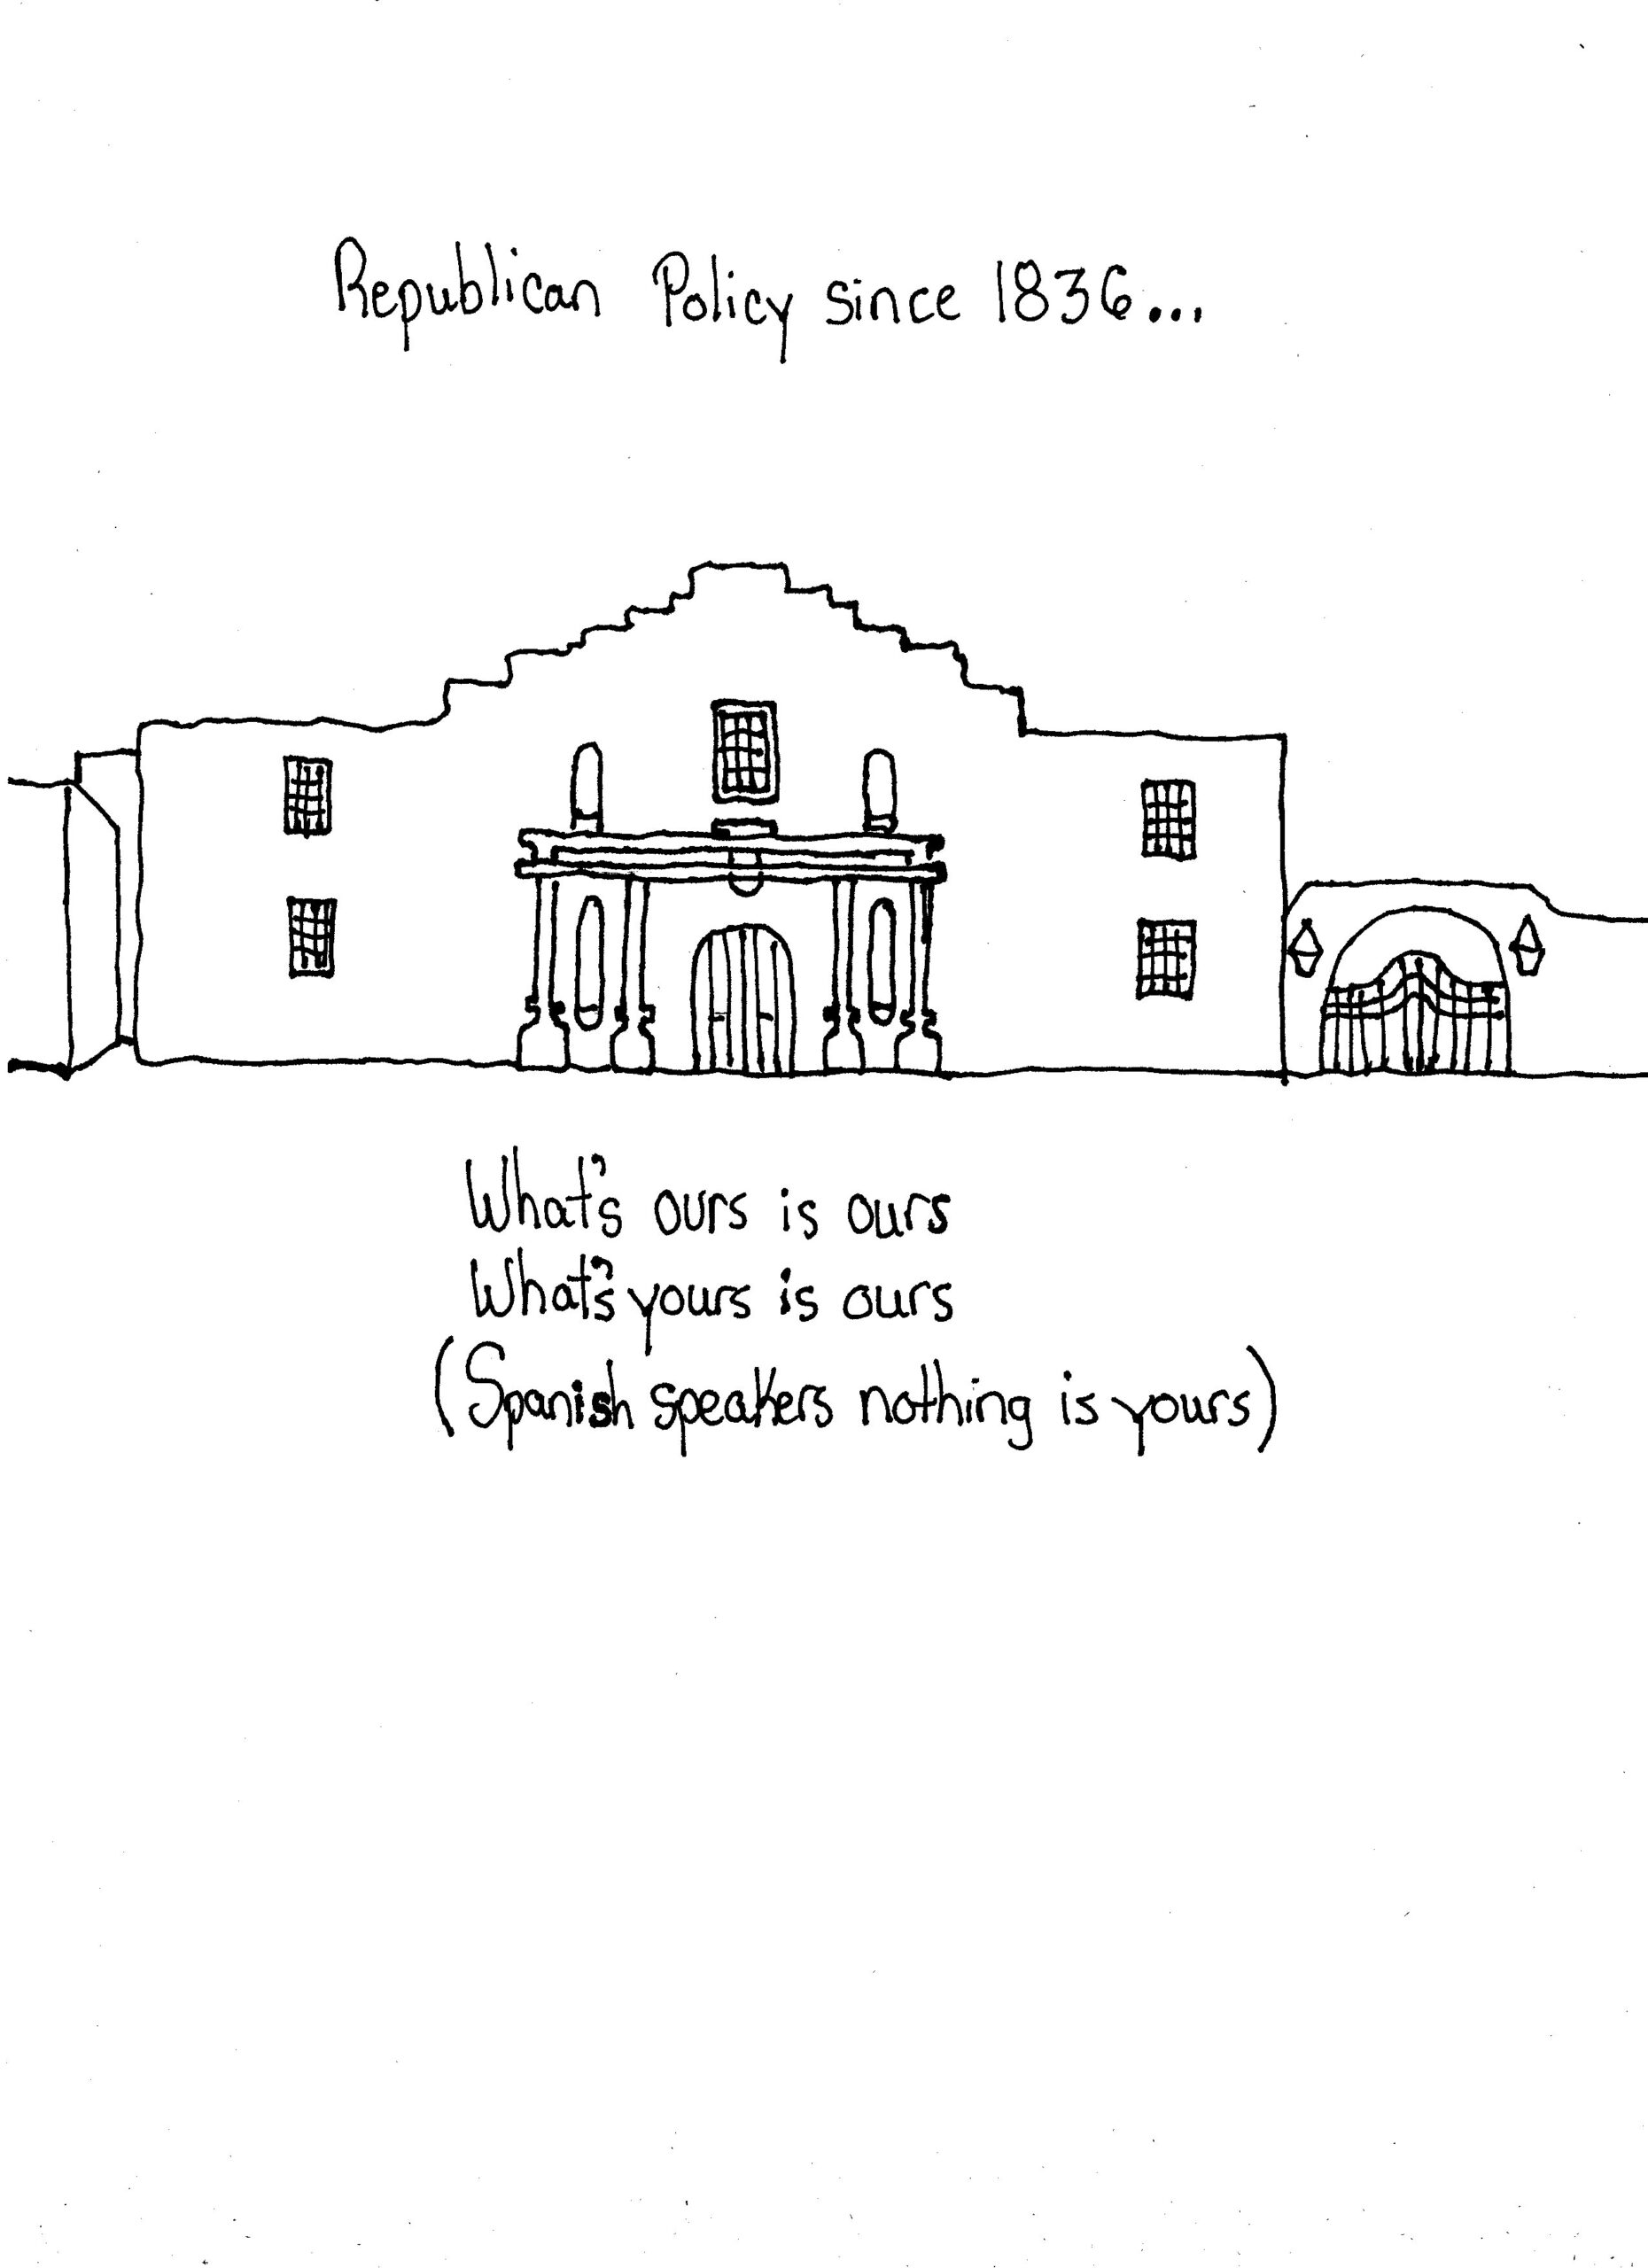 Republican Policy since 1836...
What's ours is ours
What's yours is ours
(Spanish speakers nothing is yours)